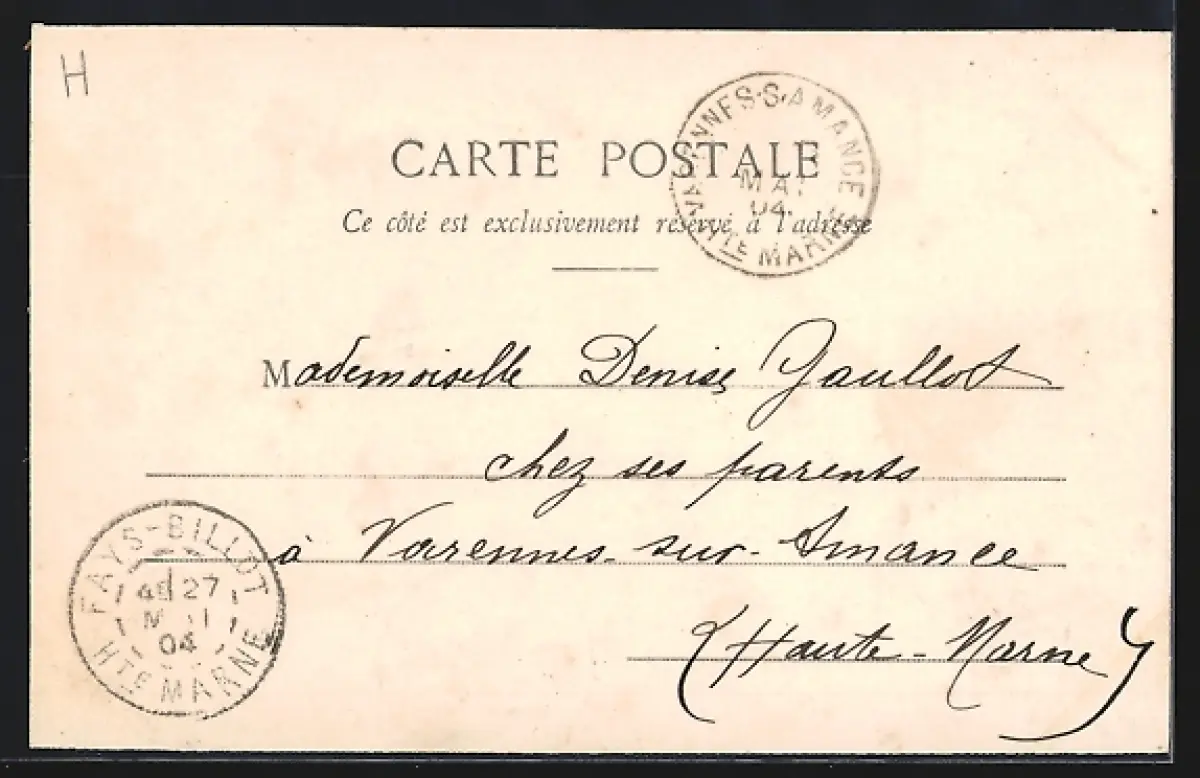 H
CARTE POSTALE
Ce côté est exclusivement réservé à l'adresse
VARENNES-S-AMANCE
MAI
04
HTE MARNE
Mademoiselle Denise Gaullot
chez ses parents
à Varennes-sur-Amance
(Haute-Marne)
FAYS-BILLOT
27
04
HTE MARNE